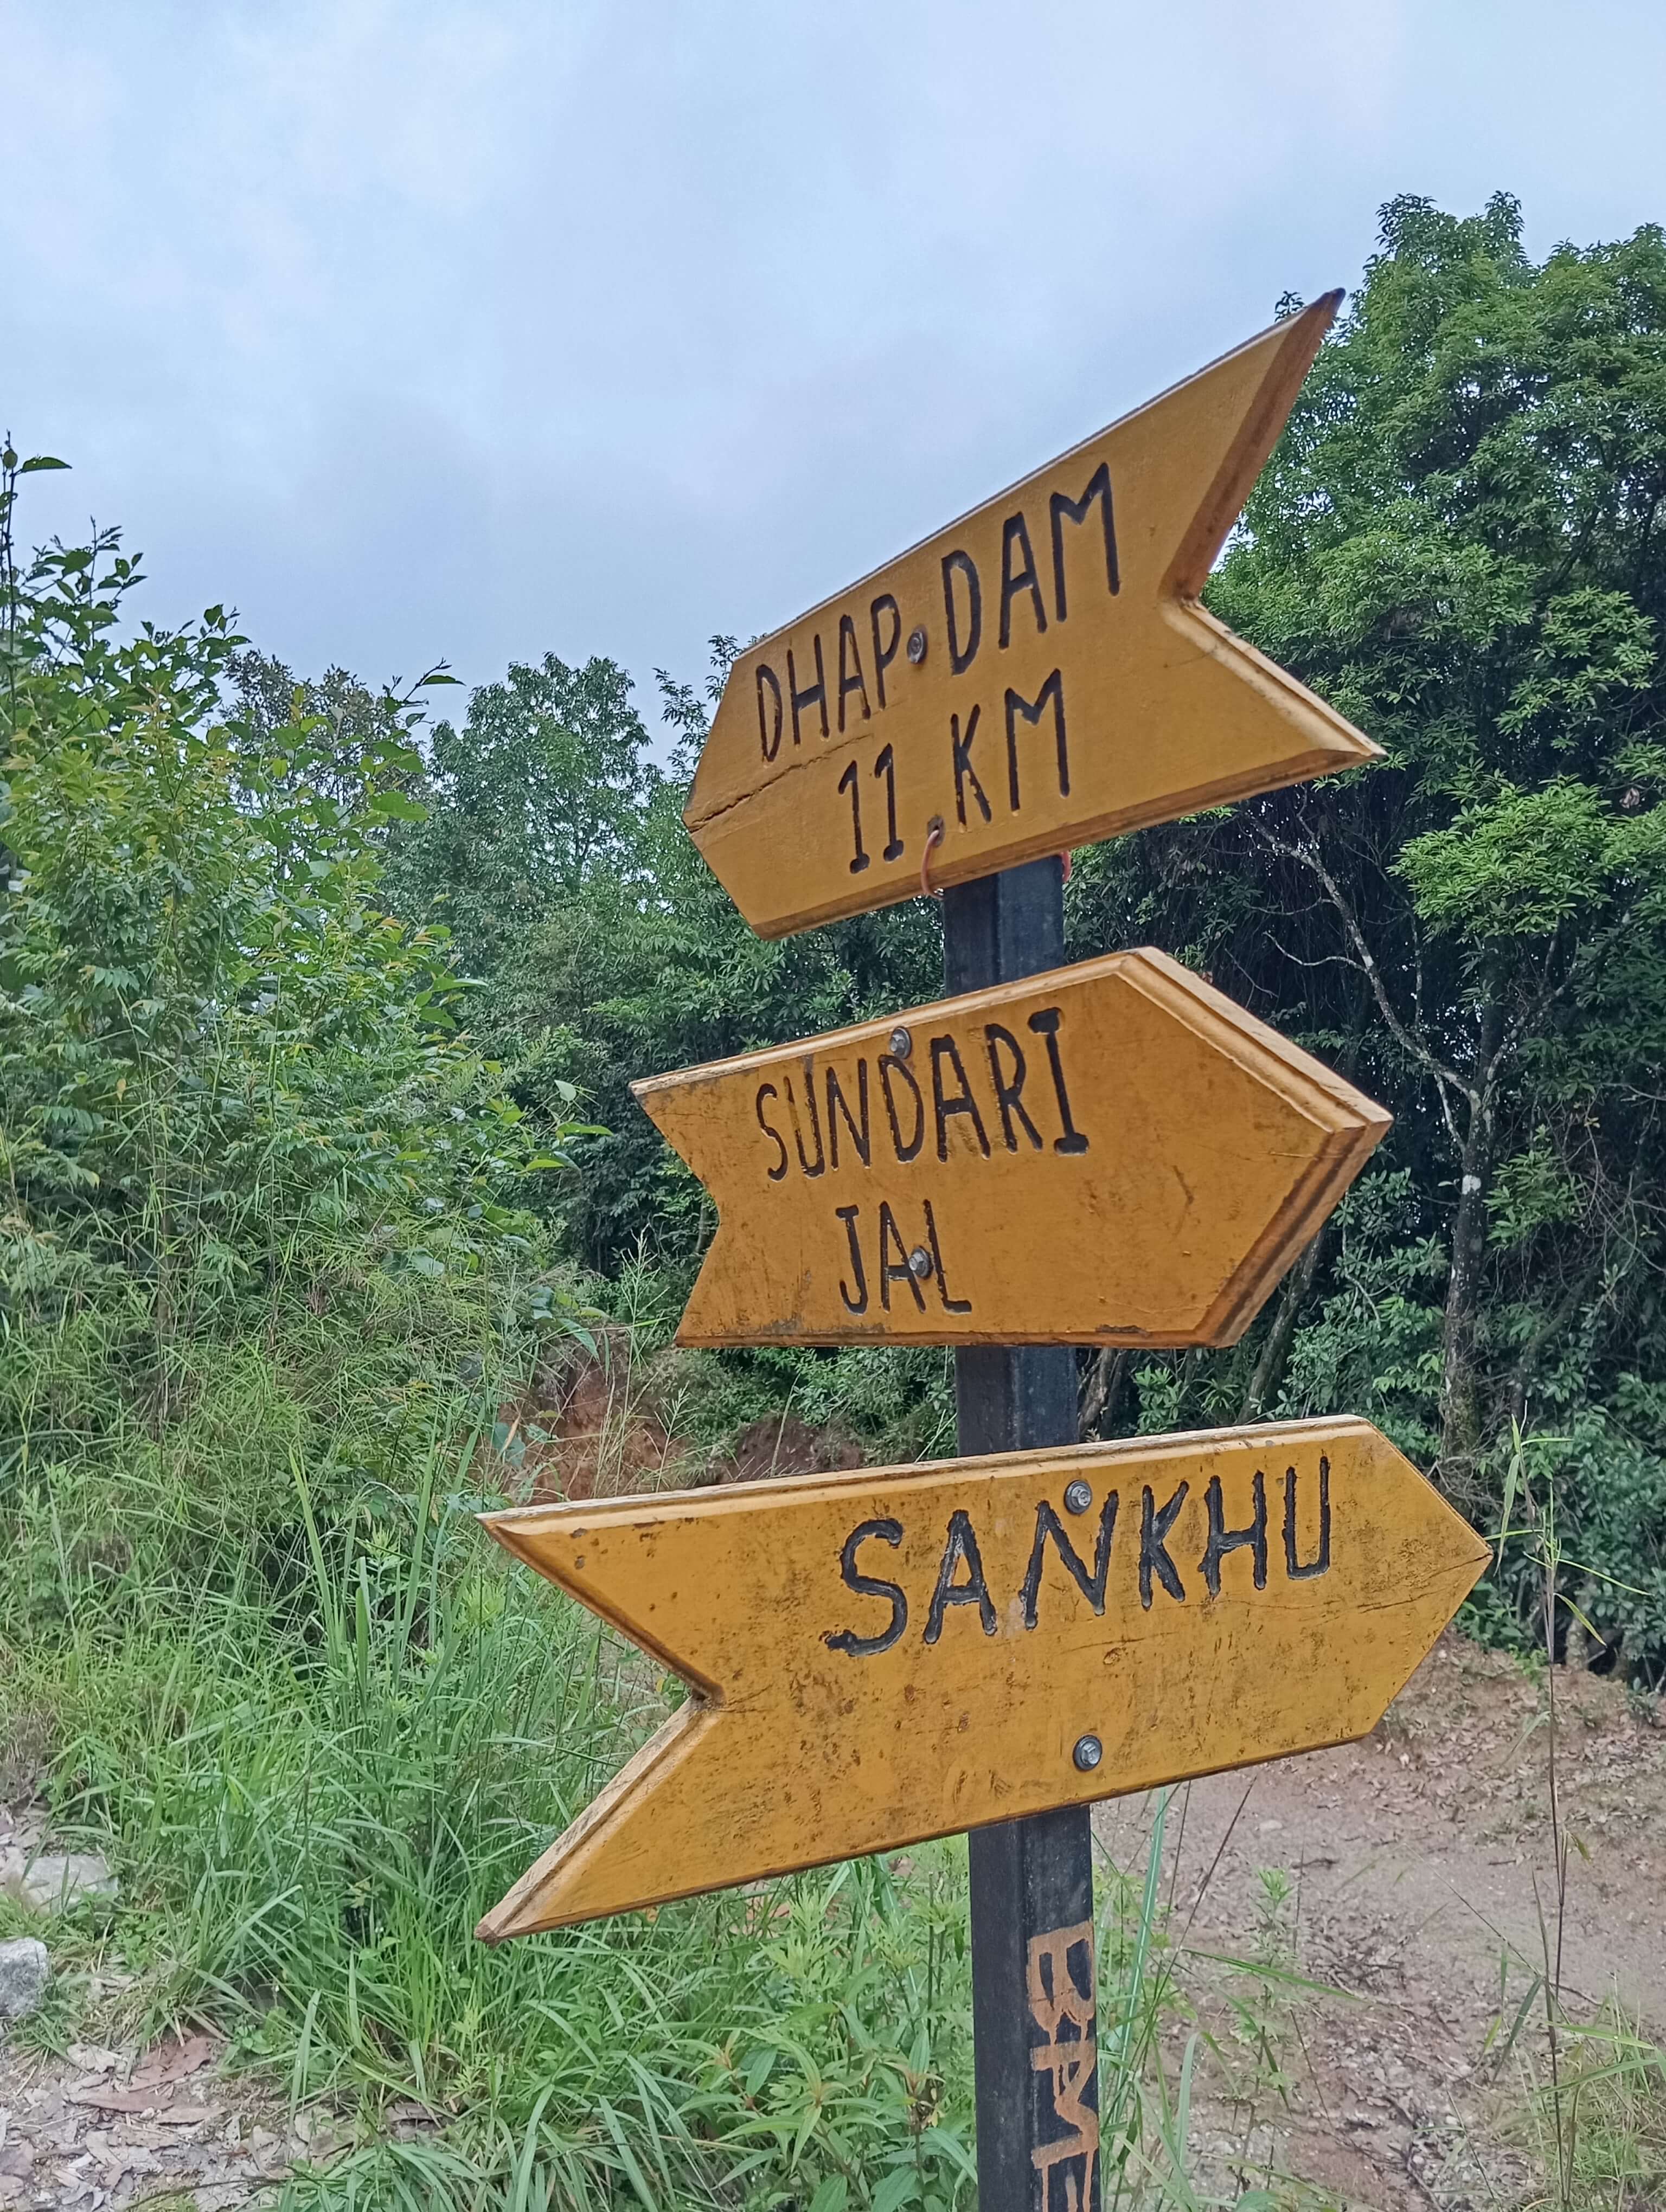 DHAP DAM
11 KM
SUNDARI
JAL
SANKHU